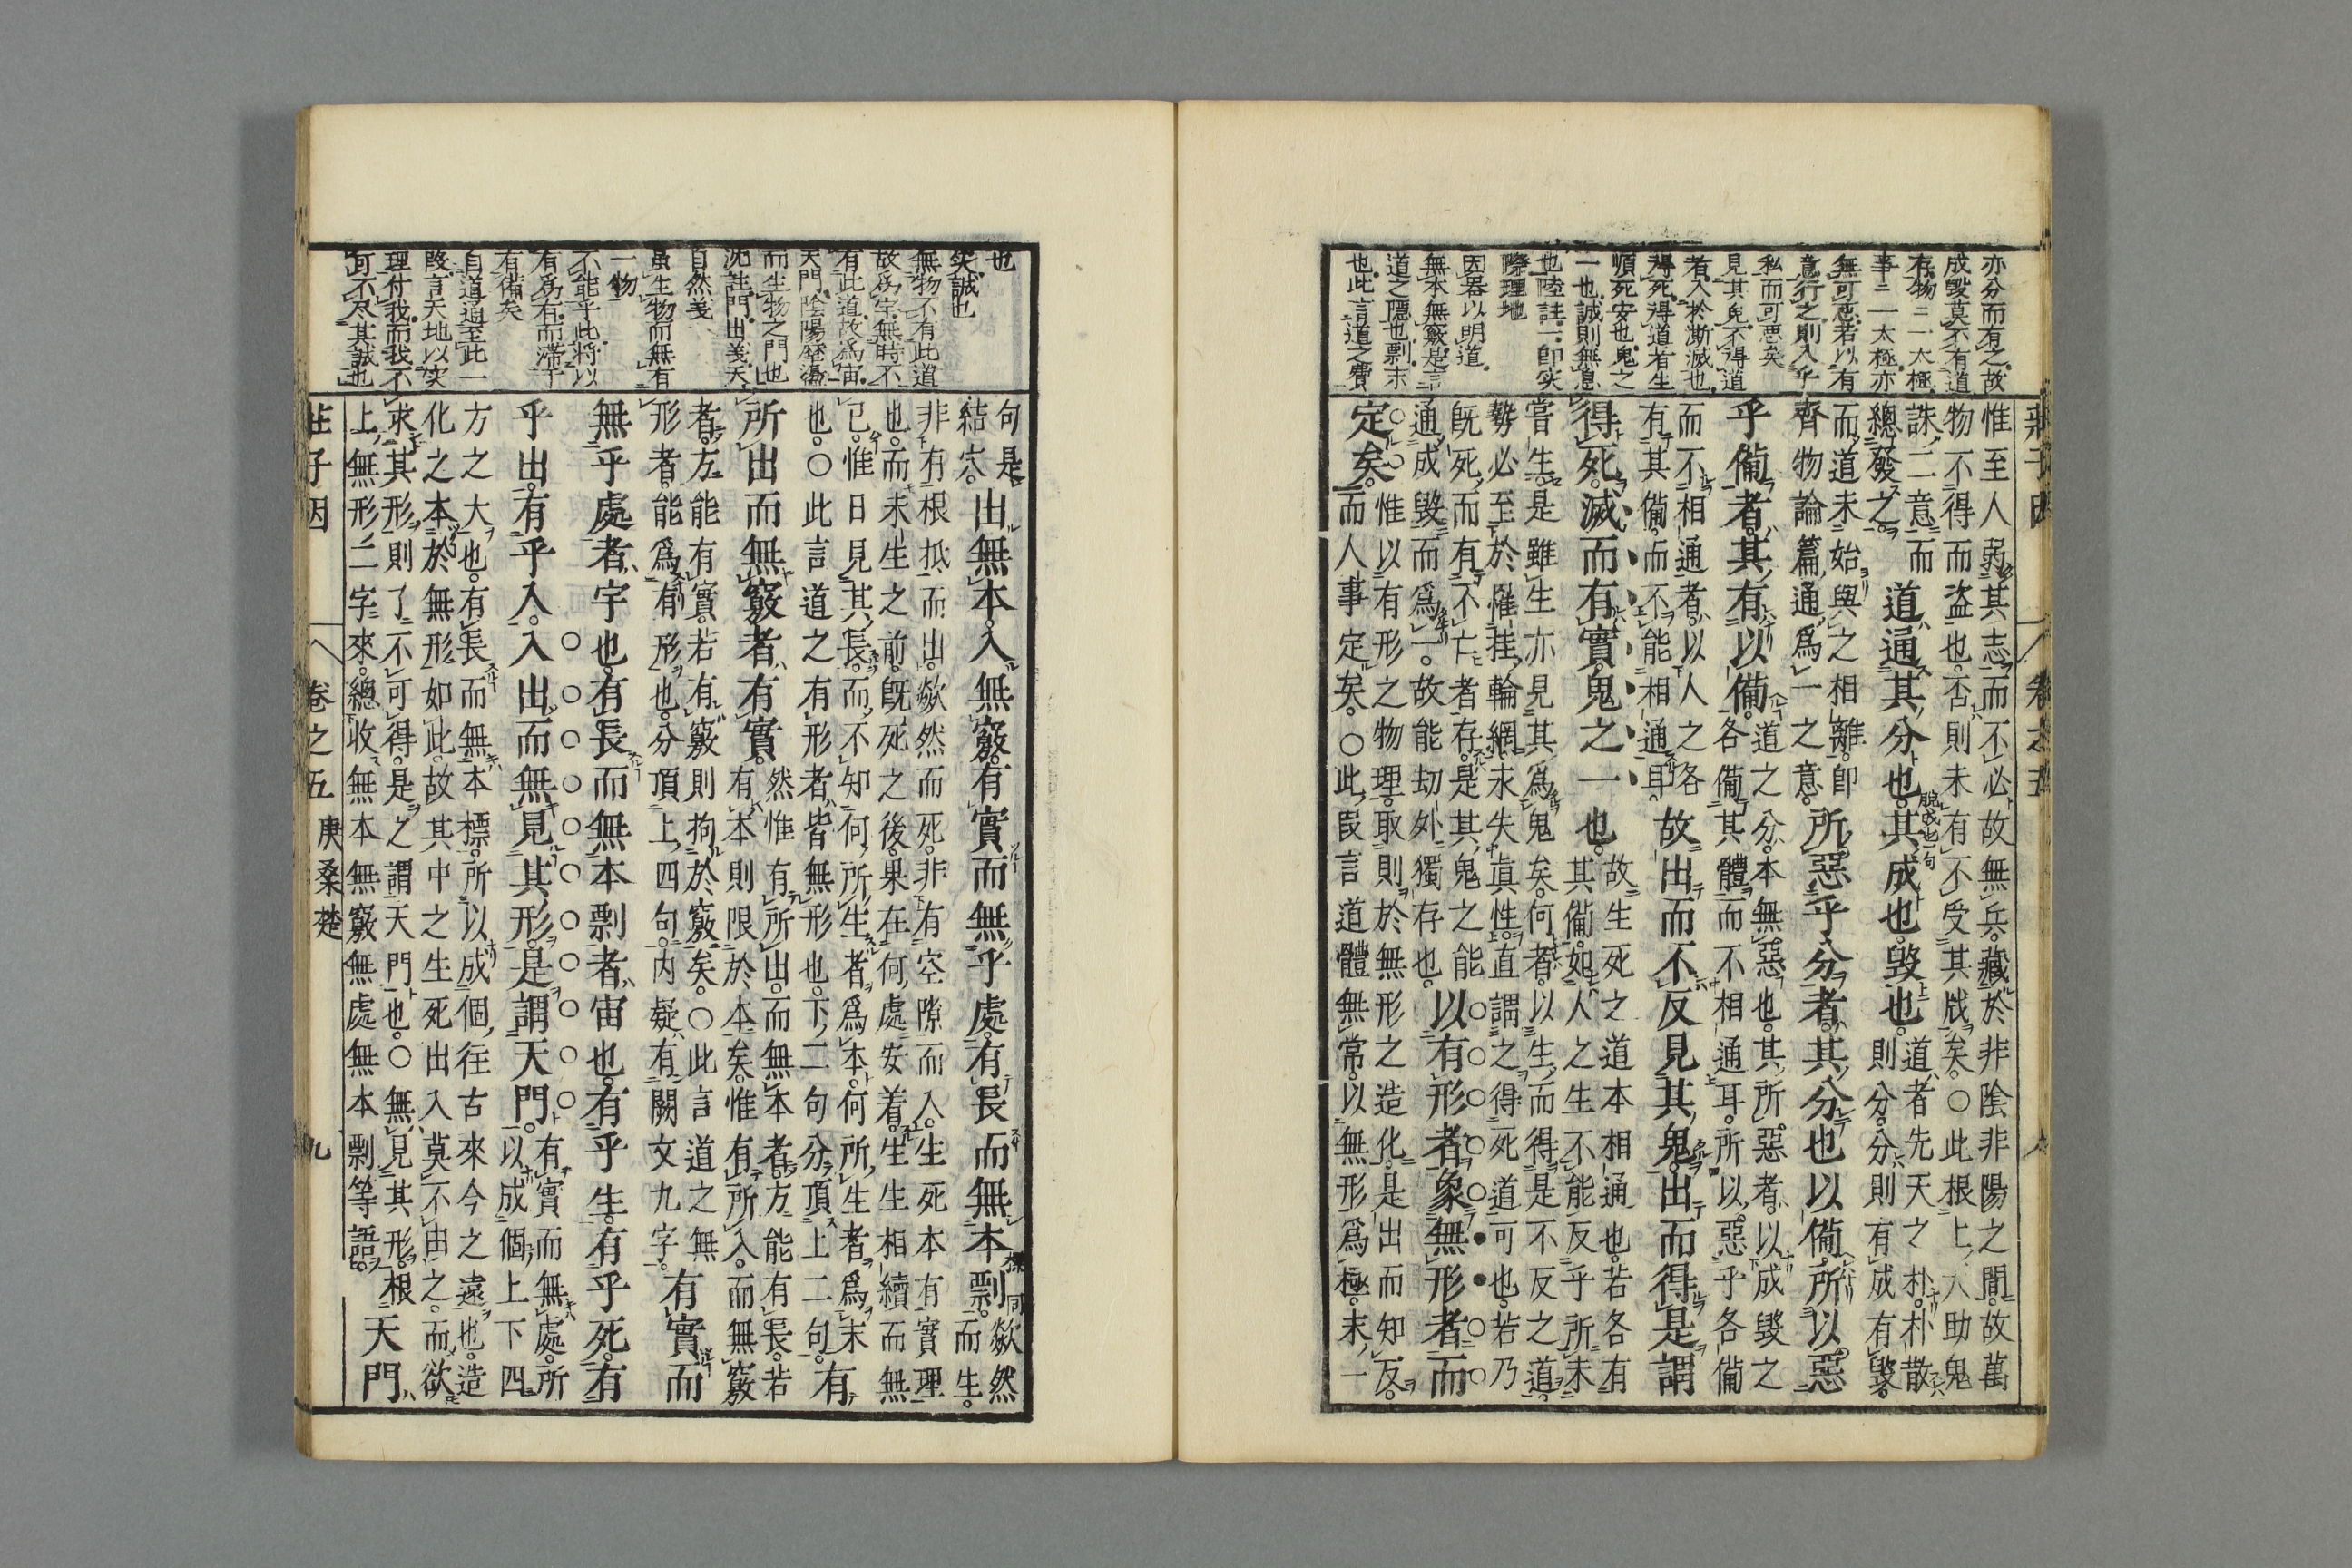 亦分而有之故
成毀莫不有道
存物ニ一大極
事ニ一太極亦
無可惡若以有
意行之則入乎
私而可惡矣
見其鬼不得道
者入於澌滅也
得死得道者生
順死安也鬼之
一也誠則無息
也陸註一即実
際理地
因器以明道
無本無竅是言
道之隱也剽末
也此言道之費
莊子因 卷之五 八
惟至人弱其志而不必故無兵藏於非陰非陽之間故萬
物不得而盗也否則未有不受其戕矣○此根上八助鬼
誅二意而道通其分也其成也毀也道者先天之朴朴散
總發之則分分則有成有毀
而道未始與之相離即所惡乎分者其分也以備所以惡
齊物論篇通為一之意
乎備者其有以備道之分本無惡也其所惡者以成毀之
各備其體而不相通耳所以惡乎各備
而不相通者以人之各故出而不反見其鬼出而得是謂
有其備而不能相通耳
得死滅而有實鬼之一也故生死之道本相通也若各有
其備如人之生不能反乎所未
嘗生是雖生亦見其為鬼矣何者以生而得是不反之道
勢必至於罹挂輪網求失真性直謂之得死道可也若乃
旣死而有不亡者存是其鬼之能以有形者象無形者而
通成毀而為一故能劫外獨存也
定矣惟以有形之物理取則於無形之造化是出而知反
而人事定矣○此叚言道體無常以無形為極末一
也
実誠也
無物不有此道
故為宇無時不
有此道故為宙
天門陰陽闔闢
而生物之門也
沈註門出義天
自然義
虽生物而無有
一物
不能乎此将以
有為有而滯于
有備矣
自道通至此一
叚言天地以实
理付我而我不
可不尽其誠也
句是出無本入無竅有實而無乎處有長而無本剽標同歘然
結宻而生
非有根抵而出歘然而死非有空隙而入生死本有實理
也而未生之前旣死之後果在何處安着生生相續而無
已惟日見其長而不知何所生者為本何所生者為末有
也○此言道之有形者皆無形也下二句分頂上二句
所出而無竅者有實然惟有所出而無本者方能有長若
有本則限於本矣惟有所入而無竅
者方能有實若有竅則拘於竅矣○此言道之無有實而
形者能為有形也分頂上四句内疑有闕文九字
無乎處者宇也有長而無本剽者宙也有乎生有乎死有
乎出有乎入入出而無見其形是謂天門有實而無處所
以成個上下四
方之大也有長而無本標所以成個往古來今之遠也造
化之本於無形如此故其中之生死出入莫不由之而欲
求其形則了不可得是之謂天門也○無見其形根天門
上無形二字來總收無本無竅無處無本剽等語
莊子因 卷之五 庚桑楚 九